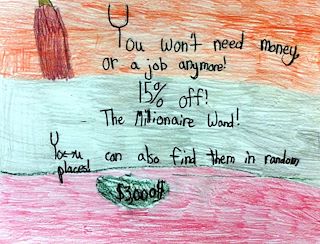 You won't need money,
or a job anymore!
15% off!
The Millionaire Wand!
You can also find them in random
places!
$3,000$